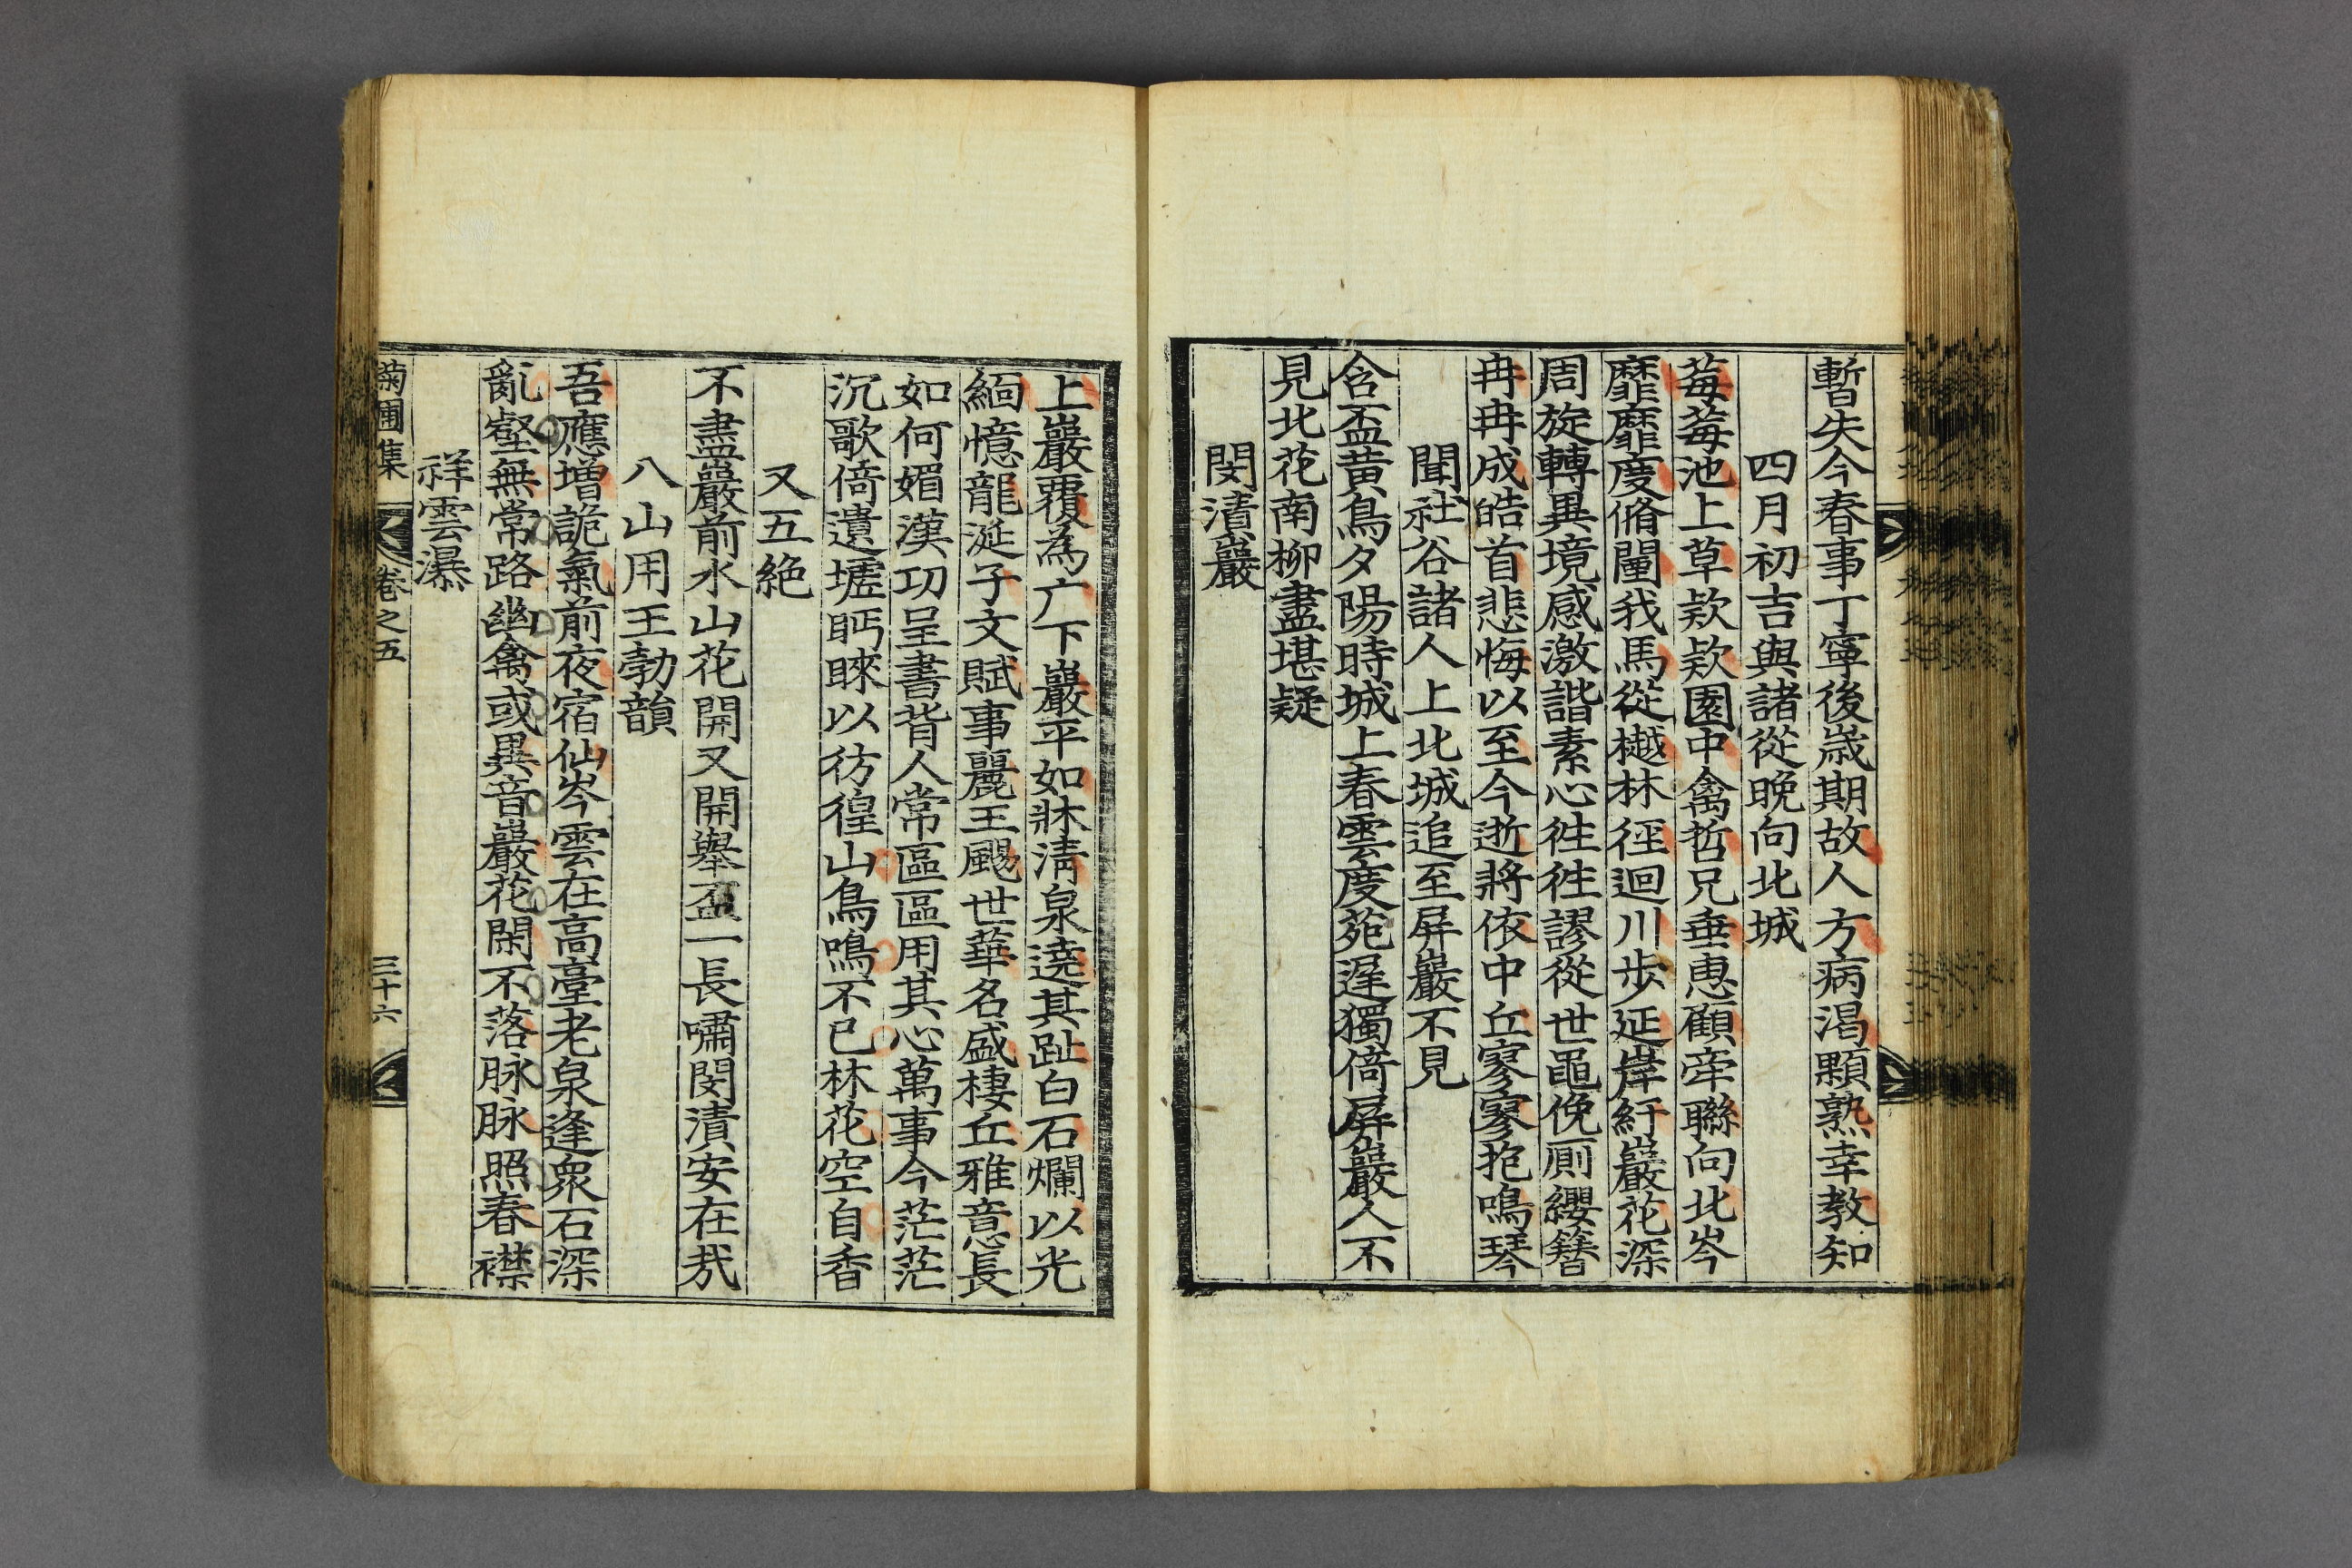 暫失今春事丁寧後歲期故人方病渴顆熟幸教知
四月初吉與諸從晚向北城
莓莓池上草欵欵園中禽哲兄垂惠顧牽聯向北岑
靡靡度脩闉我馬從樾林徑迴川步延岸紆巖花深
周旋轉異境感激諧素心往往謬從世黽俛厠纓簪
冉冉成皓首悲悔以至今逝將依中丘寥寥抱鳴琴
聞社谷諸人上北城追至屛巖不見
含盃黃鳥夕陽時城上春雲度苑遲獨倚屛巖人不
見北花南柳盡堪疑
閔漬巖
上巖覆為广下巖平如牀淸泉遶其趾白石爛以光
緬憶龍涎子文賦事麗王颺世華名盛棲丘雅意長
如何媚漢功呈書背人常區區用其心萬事今茫茫
沉歌倚遺墟眄睞以彷徨山鳥鳴不已林花空自香
又五絶
不盡巖前水山花開又開擧盃一長嘯閔漬安在㢤
八山用王勃韻
吾應増詭氣前夜宿仙岑雲在高臺老泉逢衆石深
亂壑無常路幽禽或異音巖花閑不落脉脉照春襟
祥雲瀑
菊圃集 卷之五 三十六